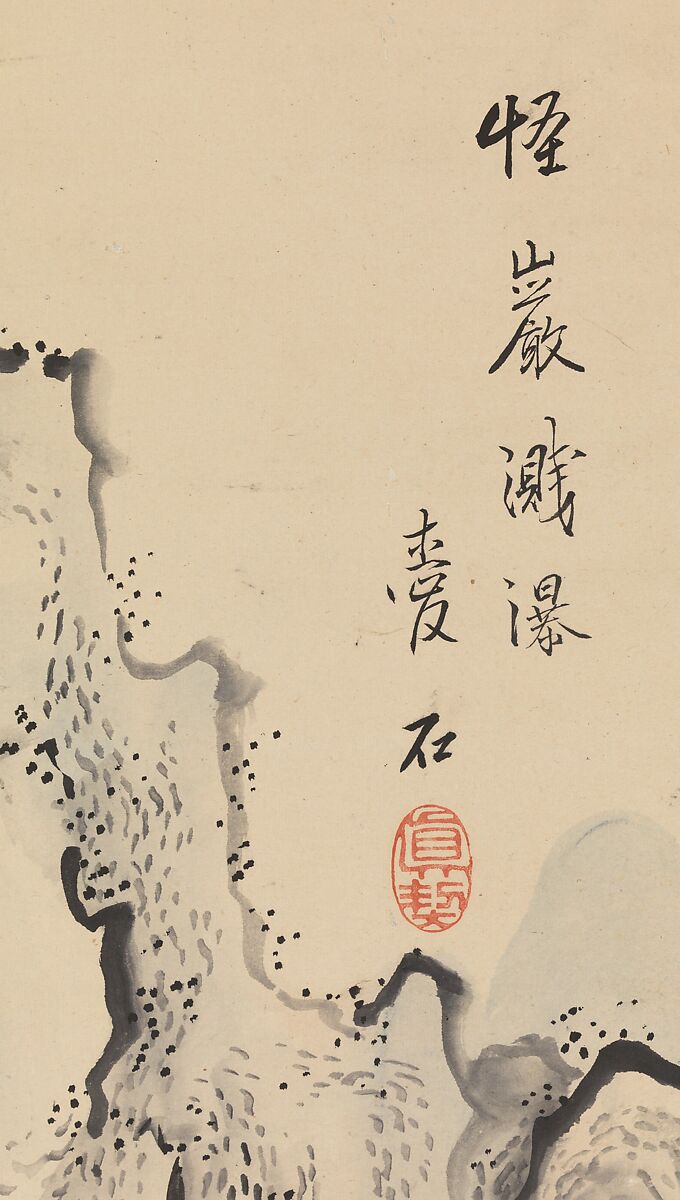 怪巖濺瀑
愛石